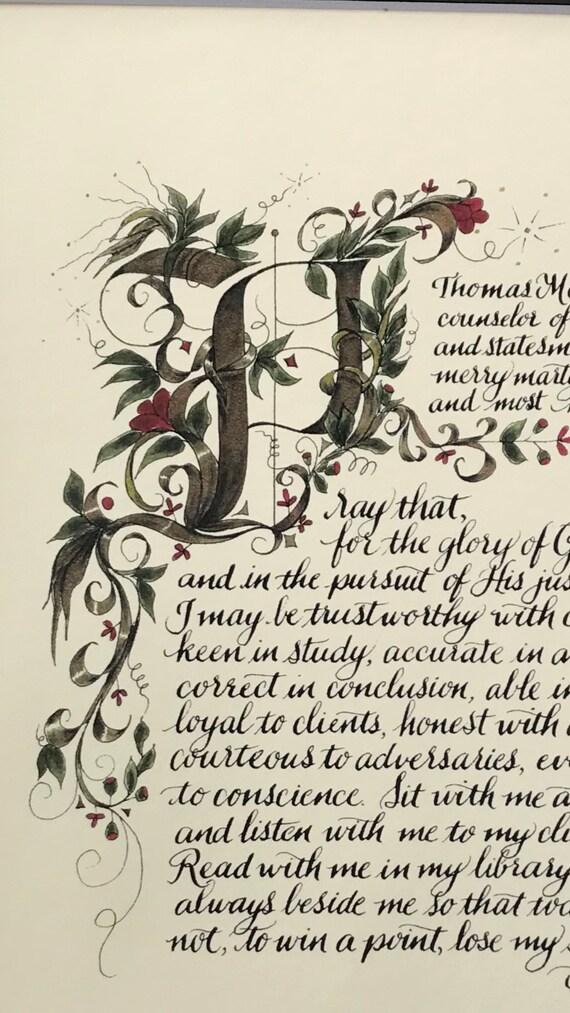 Thomas Mo
counselor of
and statesm
merry marty
and most
Pray that,
for the glory of G
and in the pursuit of His jus
I may be trustworthy with c
keen in study, accurate in a
correct in conclusion, able in
loyal to clients, honest with a
courteous to adversaries, ev
to conscience. Sit with me a
and listen with me to my cli
Read with me in my library
always beside me so that tod
not, to win a point, lose my s